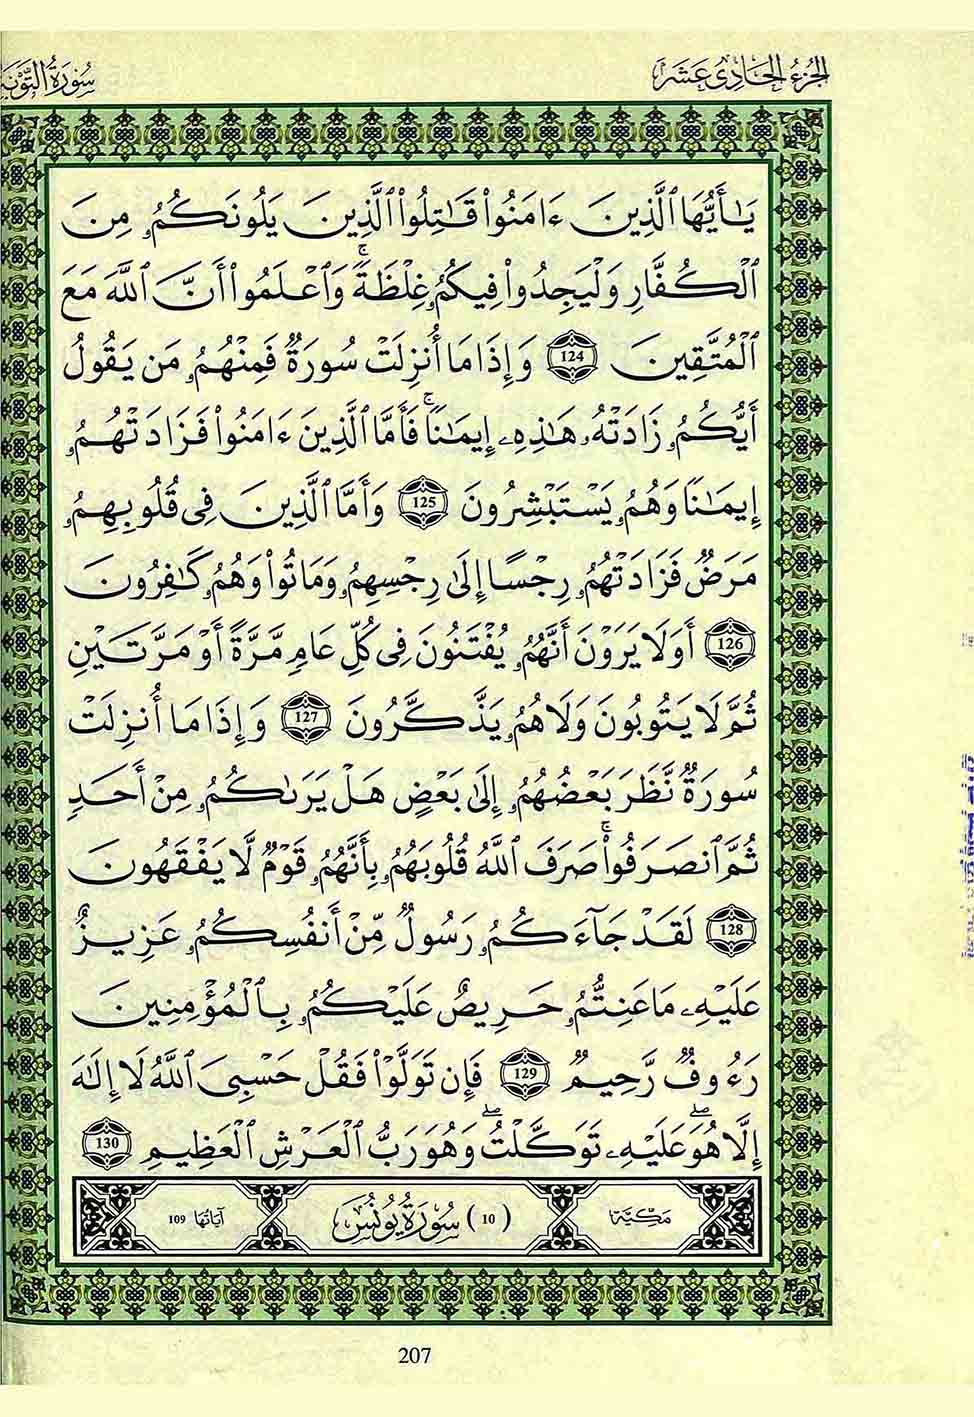 الجُزْءُ الحَادِى عَشَرَ
سُورَةُ التَّوْبَة
يَـٰٓأَيُّهَا ٱلَّذِينَ ءَامَنُواْ قَـٰتِلُواْ ٱلَّذِينَ يَلُونَكُمُۥ مِنَ
ٱلْكُفَّارِ وَلْيَجِدُواْ فِيكُمُۥ غِلْظَةً ۚ وَٱعْلَمُواْ أَنَّ ٱللَّهَ مَعَ
ٱلْمُتَّقِينَ 124 وَإِذَا مَا أُنزِلَتْ سُورَةٌ فَمِنْهُمُۥ مَن يَقُولُ
أَيُّكُمُۥ زَادَتْهُۥ هَـٰذِهِۦ إِيمَـٰنًا ۚ فَأَمَّا ٱلَّذِينَ ءَامَنُواْ فَزَادَتْهُمُۥ
إِيمَـٰنًا وَهُمُۥ يَسْتَبْشِرُونَ 125 وَأَمَّا ٱلَّذِينَ فِى قُلُوبِهِمُۥ
مَرَضٌ فَزَادَتْهُمُۥ رِجْسًا إِلَىٰ رِجْسِهِمُۥ وَمَاتُواْ وَهُمُۥ كَـٰفِرُونَ
126 أَوَلَا يَرَوْنَ أَنَّهُمُۥ يُفْتَنُونَ فِى كُلِّ عَامٍ مَّرَّةً أَوْ مَرَّتَيْنِ
ثُمَّ لَا يَتُوبُونَ وَلَا هُمُۥ يَذَّكَّرُونَ 127 وَإِذَا مَا أُنزِلَتْ
سُورَةٌ نَّظَرَ بَعْضُهُمُۥ إِلَىٰ بَعْضٍ هَلْ يَرَىٰكُمُۥ مِنْ أَحَدٍ
ثُمَّ ٱنصَرَفُواْ ۚ صَرَفَ ٱللَّهُ قُلُوبَهُمُۥ بِأَنَّهُمُۥ قَوْمٌ لَّا يَفْقَهُونَ
128 لَقَدْ جَآءَكُمُۥ رَسُولٌ مِّنْ أَنفُسِكُمُۥ عَزِيزٌ
عَلَيْهِۦ مَا عَنِتُّمُۥ حَرِيصٌ عَلَيْكُمُۥ بِٱلْمُؤْمِنِينَ
رَءُوفٌ رَّحِيمٌ 129 فَإِن تَوَلَّوْاْ فَقُلْ حَسْبِىَ ٱللَّهُ لَا إِلَـٰهَ
إِلَّا هُوَ ۖ عَلَيْهِۦ تَوَكَّلْتُ ۖ وَهُوَ رَبُّ ٱلْعَرْشِ ٱلْعَظِيمِ 130
مَكِّيَّة (10) سُورَةُ يُونُسَ آيَاتُهَا 109
207